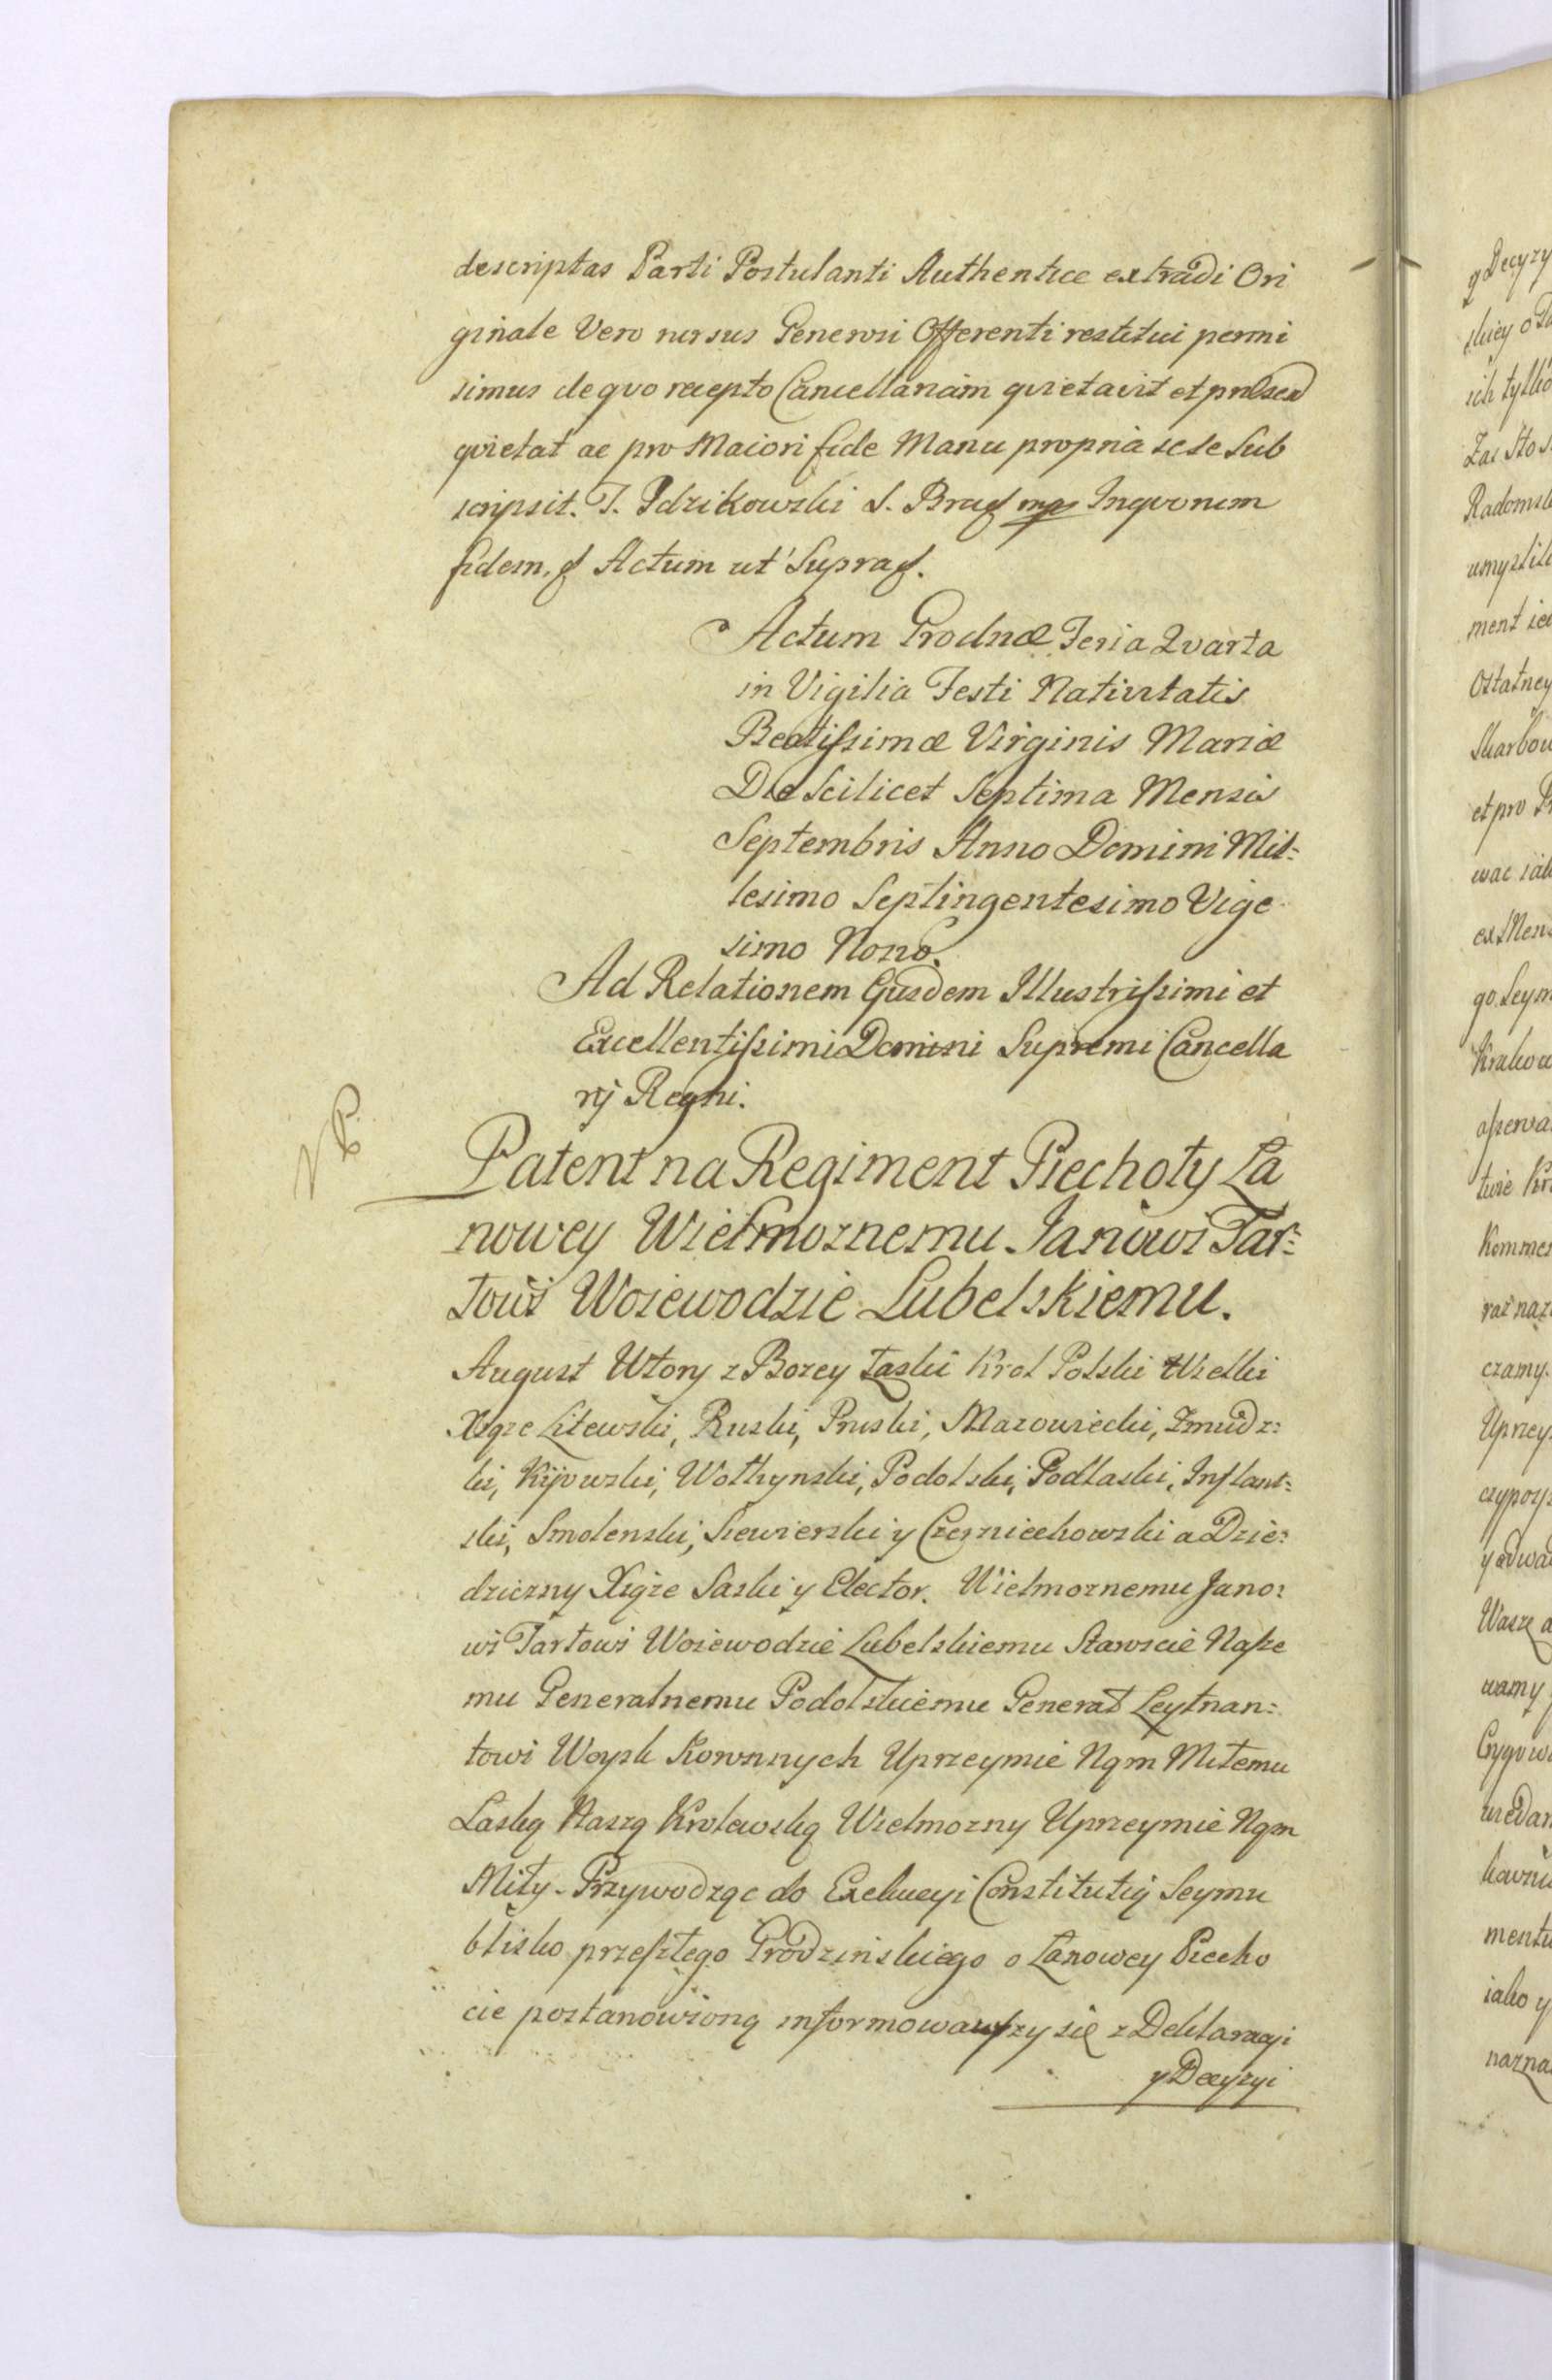 descriptas Parti Postulanti Authentice extradi Ori
ginale Vero rursus Generosi Offerenti restitui permi
simus de quo recepto Cancellariam qvietavit et
qvietat ac pro Maiori fide Manu propria sese Sub
scripsit. J. Idzikowski S. mp Inqvorum
fidem. Actum ut Supra.
Actum Grodnæ Feria Qvarta
in Vigilia Festi Nativitatis
Beatissimæ Virginis Mariæ
Die Scilicet Septima Mensis
Septembris Anno Domini Mil=
lesimo Septingentesimo Vige
simo Nono.
Ad Relationem Ejusdem Illustrissimi et
Excellentissimi Domini Supremi Cancella
rij Regni.
Patent na Regiment Piechoty Ła
nowey Wielmoznemu Janowi Tar=
łowi Woiewodzie Lubelskiemu.
August Wtory z Bozey Łaski Krol Polski Wielki
Xsąze Litewski, Ruski, Pruski, Mazowiecki, Zmudz=
ki, Kijowski, Wołhynski, Podolski, Podlaski, Inflant=
ski, Smolenski, Siewierski y Czerniechowski a Dzie=
dziczny Xsiąze Saski y Elector. Wielmoznemu Jano=
wi Tarłowi Woiewodzie Lubelskiemu Staroscie Nasze
mu Generalnemu Podolskiemu Generał Leytnan=
towi Woysk Koronnych Uprzeymie Nąm Miłemu
Laskę Naszą Krolewską Wielmozny Uprzeymie Nąm
Miły. Przywodząc do Exekucyi Constitutię Seymu
blisko przeszłego Grodzinskiego o Łanowey Piecho
cie postanowioną informowawszy się z Deklaracyi
y Decyzyi